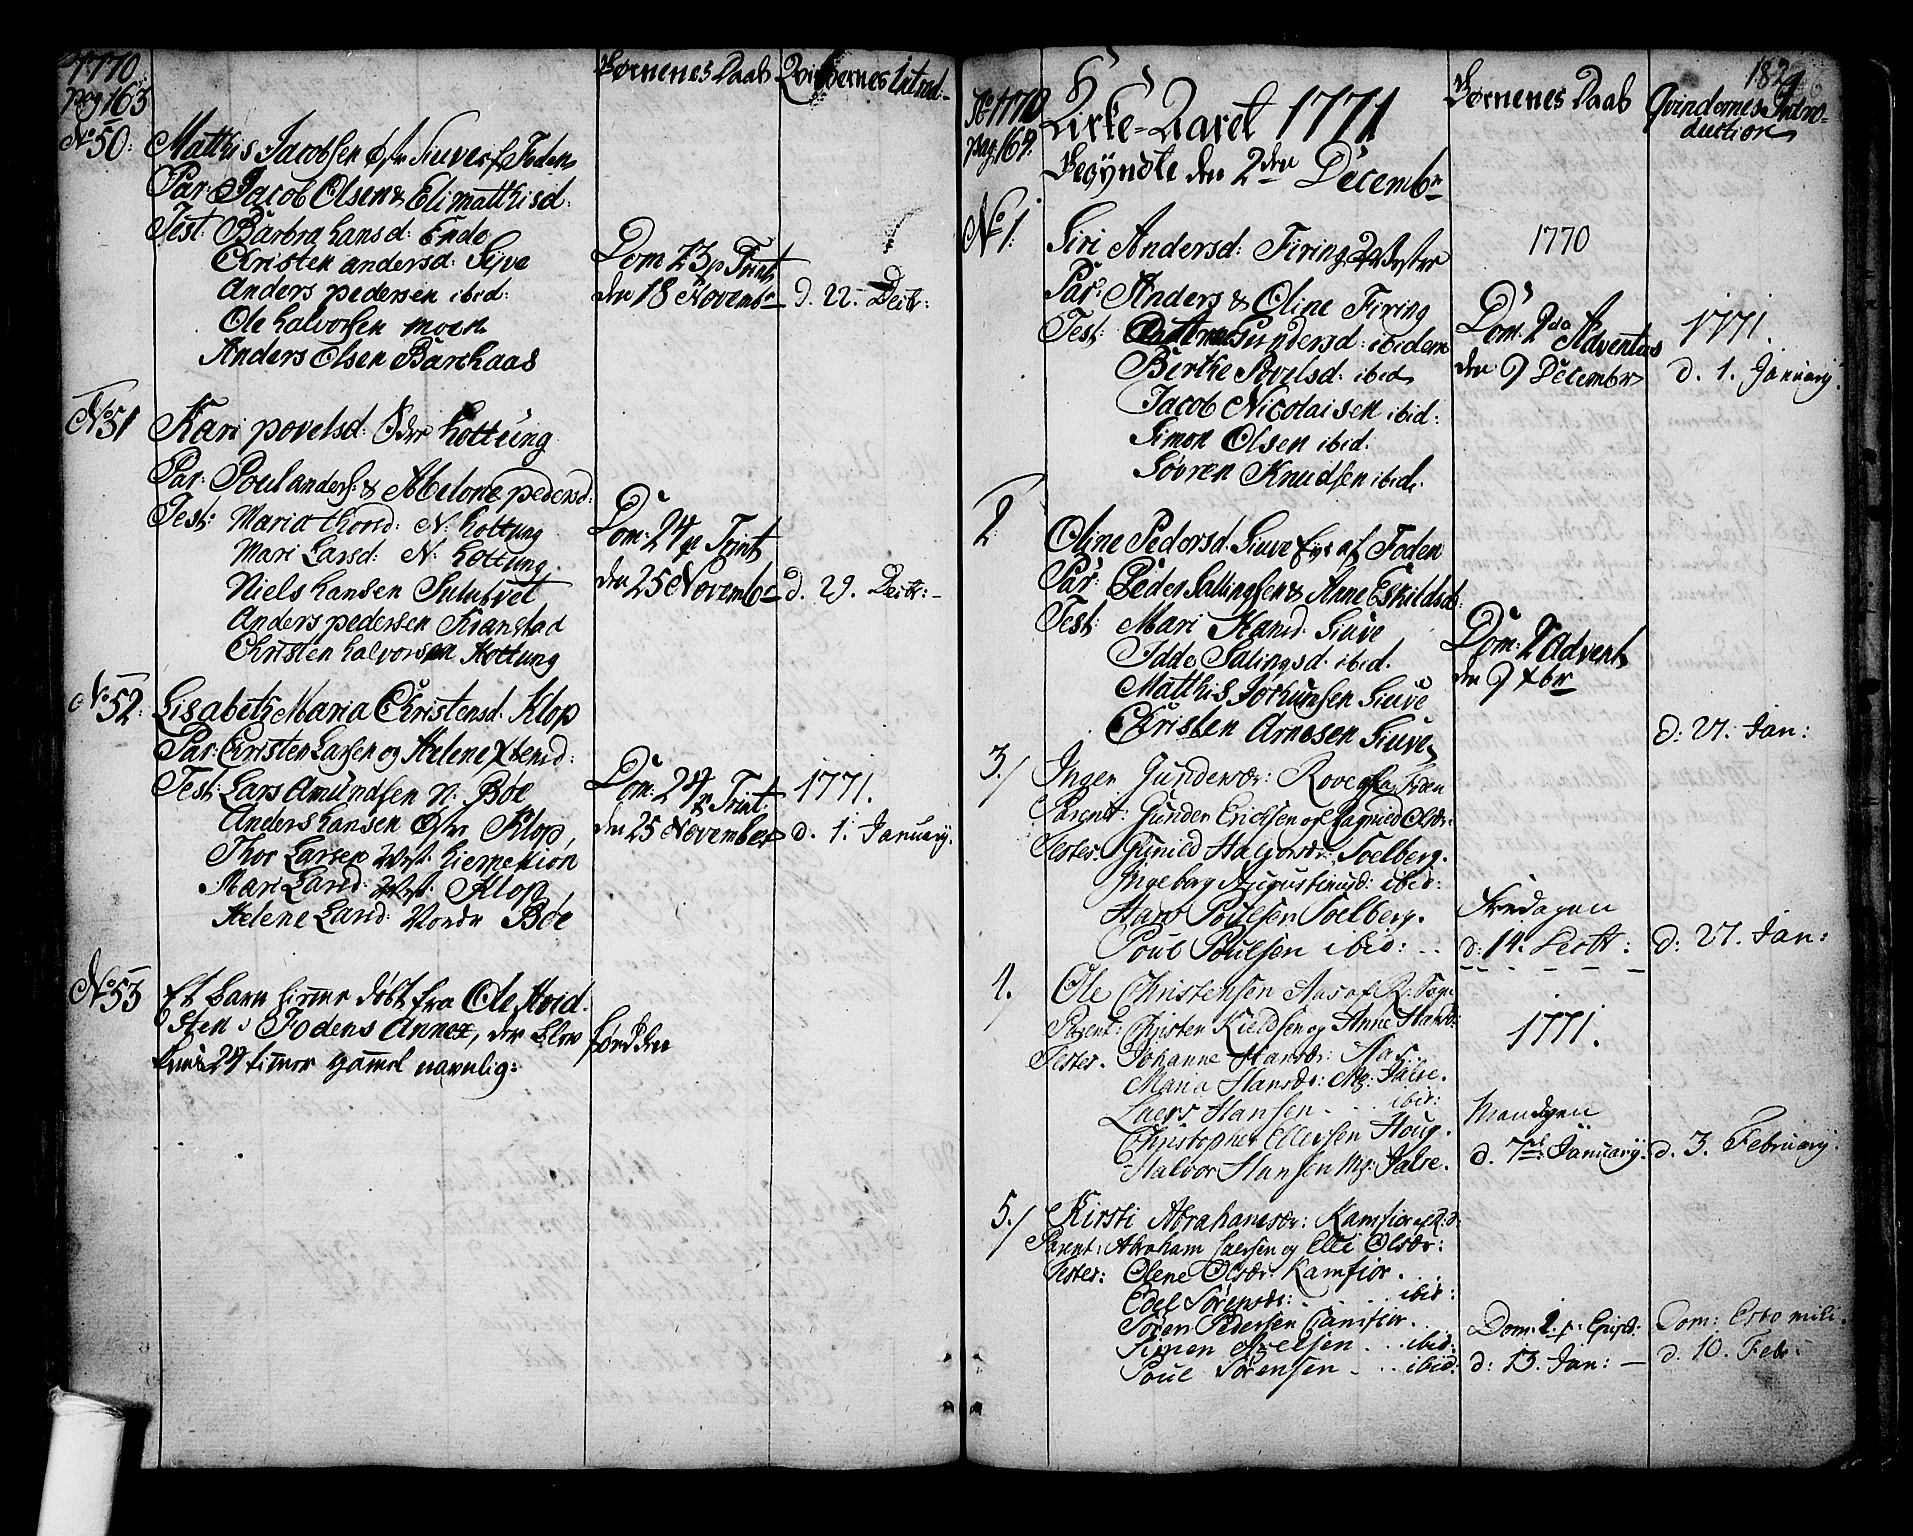 1770
pag 163
Børnenes Daab
Qvindernes Introd:
No 50:
Matthis Jacobsen Siuve af Foden
Par: Jacob Olsen & Eli matthisd:
Test: Barbra hansd: Ende
Christen andersd: Sejve
Anders pedersen ibid:
Ole halvorsen moen
Anders Olsen Barkhaas
Dom 23 p Trinit
den 18 Novembr
d. 22. Decbr:
No 51
Kari povelsd: Øder hottung
Par: Poul anders: & Abelone pedersd:
Test: Maria thorsd: N: hottung
Mari Larsd: N: hottung
Niels hansen Sulutvet
Anders pedersen Kranstad
Christen halvorsen Hottung
Dom: 24 p Trinit
den 25 Novembr
d. 29. Decbr: -
No 52:
Lisabeth Maria Christensd. Klop
Par: Christen Larsen og Helene Xtensd:
Test: Lars Amundsen N: Bøe
Anders hansen Østr Klop,
Thor Larsen Vest: hiermekion
Mari Larsd: Vest: Klop
Helene Larsd: Nordr Bøe
Dom: 24 p Trinit
den 25 November
1771.
d. 1. January.
No 53
Et barn hiemme døbt fra Ole Hvid-
sten i Fodens Annex, der blev
kuns 24 timer gammel navnlig:
Søfr
1770
pag: 169.
Kirke-Aaret 1771
begyndte den 2den Decembr
Børnenes Daab
182
Qvindernes Intro-
duction
No 1.
Siri Andersd: Firing Vestre
Par: Anders & Oline Firing
Test: Gundersd: ibidem
Berthe Povelsd: ibid
Jacob Nicolaisen ibid:
Simon Olsen ibid:
Søvren Knudsen ibid:
1770
Dom: 2da Adventus
den 9 Decembr
1771.
d. 1. January.
2
Oline Pedersd. Siuve Eye af Foden
Par: Peder Sallingsen & Anne Eskildsd:
Test: Mari Hansd Siuve
Idde Salingsd: ibid.
Matthis Jochumsen Siuve
Christen Arnesen Siuve
Dom: 2 Advent
den 9 Xbr
d: 27. Jan:
3.
Inger Gundersdr: Rove fra Foden
Parent: Gunder Erichsen og Ragnild Olsdr:
Testes: Gunild Halvorsdr: Soelberg.
Ingeborg Augustinusd: ibid:
Hans Poulsen Soelberg.
Poul Poulsen ibid: ..
Fredagen
d: 14. Decbr:
d: 27. Jan:
4.
Ole Christensen Aas af R: Sogn
Parent: Christen Kieldsen og Anne Hansdr:
Testes. Johanne Hansdr: Aas.
Maria Hansdr: Mg: Jalse.
Laers Hansen . . . ibid:
Christopher Ellefsen Houg.
Halvor Hansen Mg: Jalse.
1771.
Mandagen
d. 7de January.
d. 3. February.
5.
Kirsti Abrahamsdr: Kamfior af R: S:
Parent: Abraham Laersen og Elli Olsdr:
Testes: Olene Olsdr: Kamfior.
Edel Sørensdr: . . . . ibid:
Søren Pedersen Camfior.
Simen Axelsen . . . ibid:
Poul Sørensen . . . ibid:
Dom: 1. p: Epiph:
d: 13. Jan: -
Dom: Esto mihi
d. 10. Feb: